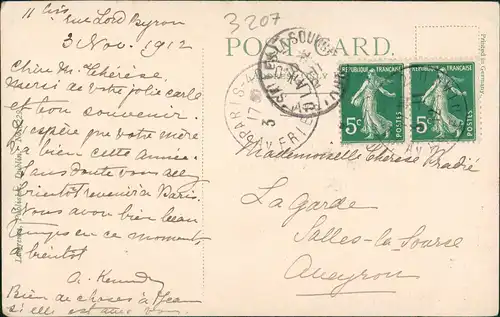 11 bis
rue Lord Byron
3 Nov. 1912
Chère M. Thérèse,
Merci de votre jolie carte
et bon souvenir.
J'espère que votre mère
va bien cette année.
Sans doute vous allez
bientôt revenir à Paris.
Nous avons bien beau
temps en ce moment
à bientôt
Bien de choses à Jean
si elle est avec vous.
3207
POST CARD.
Printed in Germany.
PARIS
3
REPUBLIQUE FRANÇAISE
5c
POSTES
REPUBLIQUE FRANÇAISE
5c
POSTES
Mademoiselle Thérèse Pradié
La Garde
Salles-la-Source
Aveyron